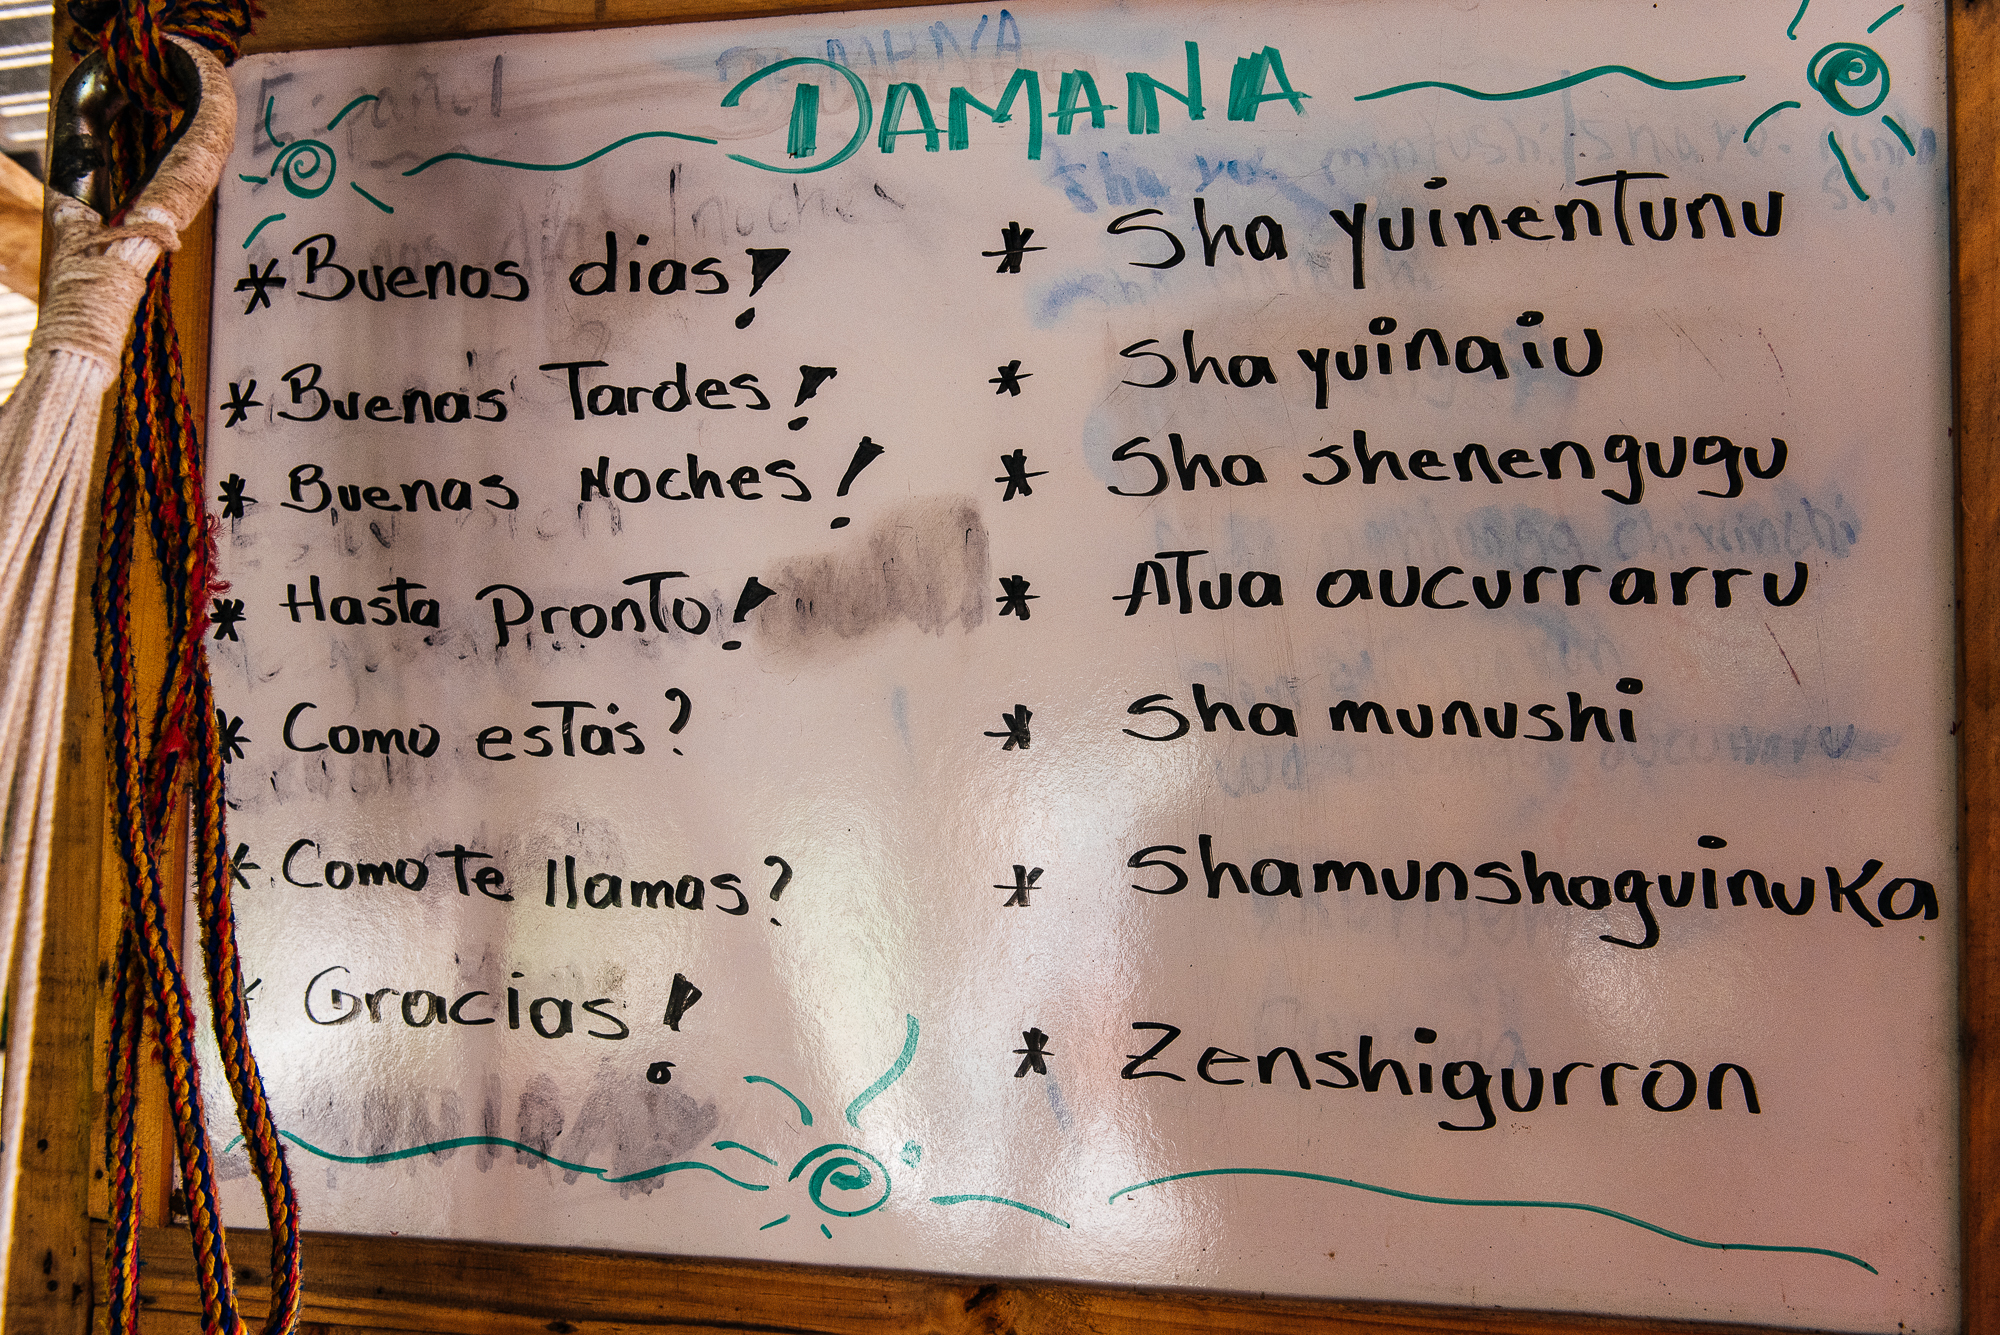 DAMANA
* Buenos dias! * Sha yuinenTunu
* Buenas Tardes! * Sha yuinaiu
* Buenas Noches! * Sha shenengugu
* Hasta Pronto! * ATua aucurrarru
* Como estás? * Sha munushi
* Como Te llamas? * ShamunshaguinuKa
* Gracias! * Zenshigurron
Español